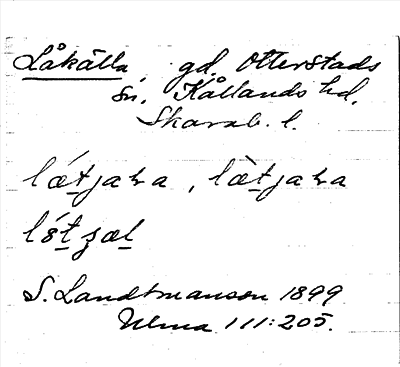 Låkälla, gd. Otterstads
sn. Kållands hd.
Skarab. l.
lætjaka, lætjaka
S. Landtmanson 1899
Ulma 111:205.